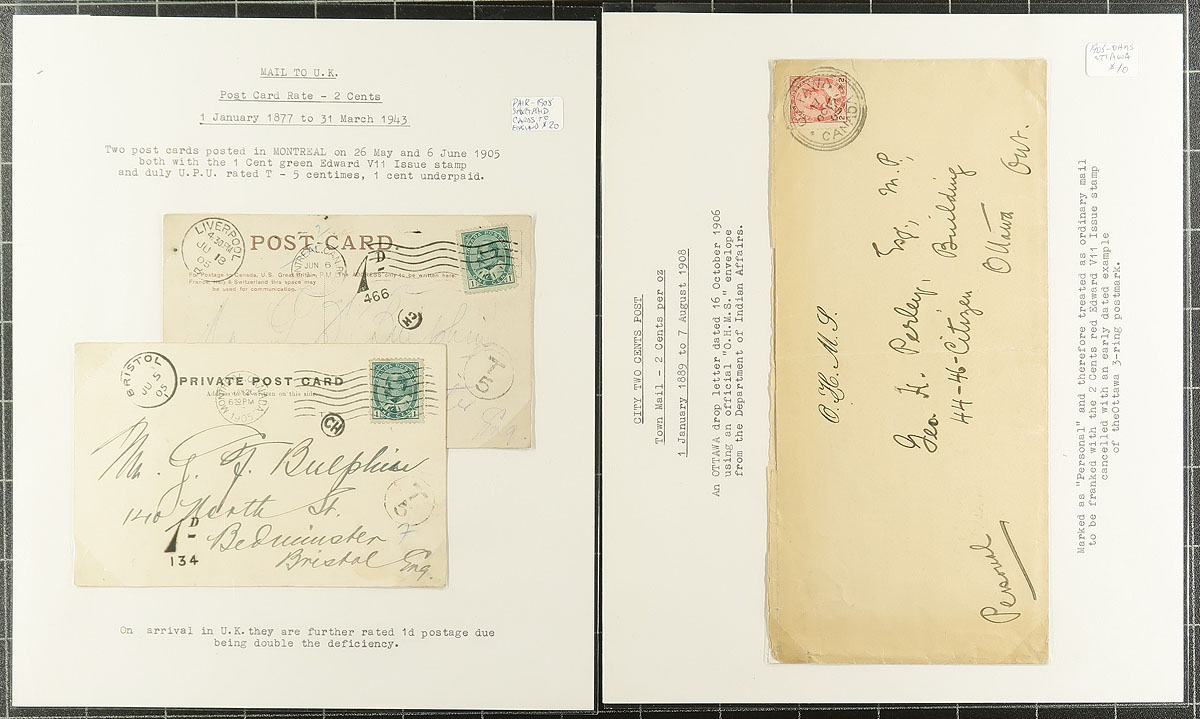 MAIL TO U.K.
Post Card Rate - 2 Cents
1 January 1877 to 31 March 1943
PAIR - 1905
SHORTPAID
CARDS TO
ENGLAND $20
Two post cards posted in MONTREAL on 26 May and 6 June 1905
both with the 1 Cent green Edward V11 Issue stamp
and duly U.P.U. rated T - 5 centimes, 1 cent underpaid.
LIVERPOOL
30PM
JU 18
05
POST-CARD.
MONTREAL, CAN.
JUN 6
For Postage to Canada, U.S. Great Britain,
France, Italy & Switzerland this space may
be used for communication.
The ADDRESS only to be written here.
1 D
466
CH
T
5
BRISTOL
JU 5
05
PRIVATE POST CARD
Address to be written on this side.
CH
Mr. G. F. Bulphin
140 North St.
Bedminster
Bristol Eng.
T
5
1 D
134
On arrival in U.K. they are further rated 1d postage due
being double the deficiency.
CITY TWO CENTS POST
Town Mail - 2 Cents per oz
1 January 1889 to 7 August 1908
An OTTAWA drop letter dated 16 October 1906
using an official "O.H.M.S." envelope
from the Department of Indian Affairs.
1905-OHMS
OTTAWA
$10
OTTAWA
CANADA
O. H. M. S.
Geo. H. Perley, Esq., M.P.,
44-46-Citizen Building
Ottawa Ont.
Personal
Marked as "Personal" and therefore treated as ordinary mail
to be franked with the 2 Cents red Edward V11 Issue stamp
cancelled with an early dated example
of theOttawa 3-ring postmark.